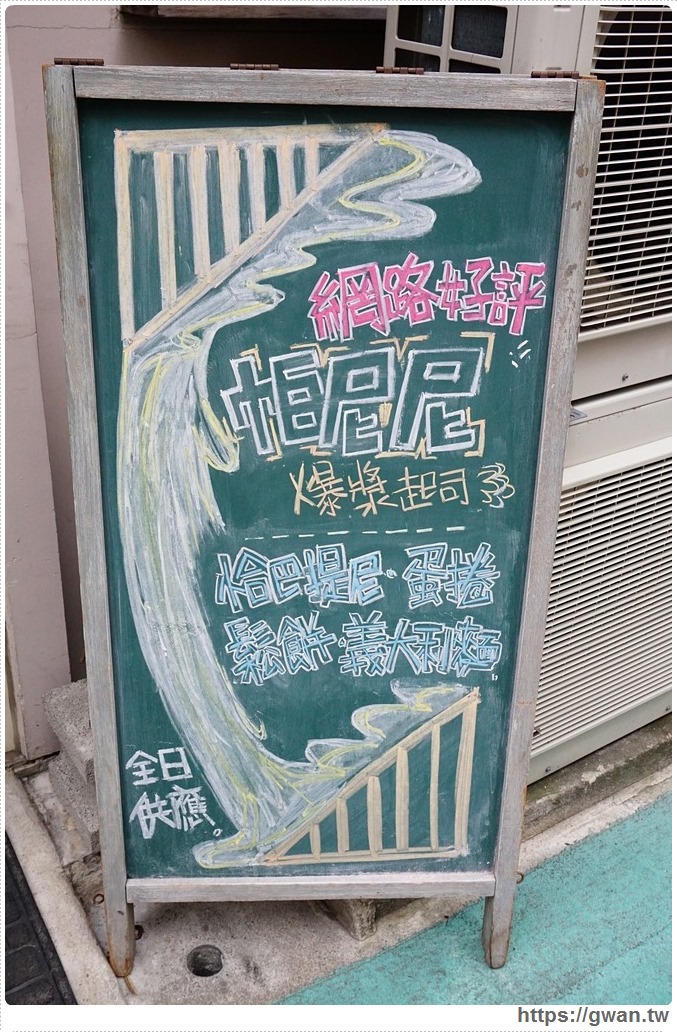 網路好評
帕尼尼
爆漿起司
恰巴提尼·蛋捲
鬆餅·義大利麵
全日
供應。
https://gwan.tw